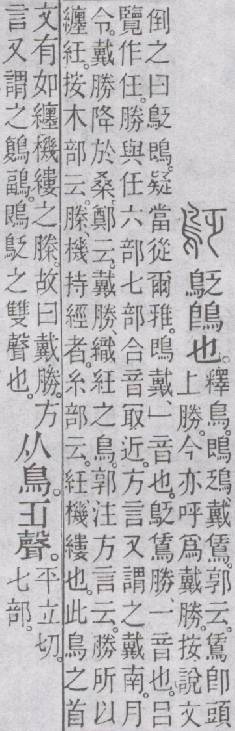 鴔鵖也。釋鳥。鵖鴔、戴鵀。郭云。鵀卽頭
上勝。今亦呼爲戴勝。按說文
倒之曰鴔鵖。疑當從爾雅。鵖戴、一音也。鴔鵀勝、一音也。呂
覽作任。勝與任六部七部合音取近。方言又謂之戴南。月
令。戴勝降於桑。鄭云。戴勝、織紝之鳥。郭注方言云。勝所以
纏紝。按木部云。榺、機持經者。糸部云。紝、機縷也。此鳥之首
文有如纏機縷之榺。故曰戴勝。方
言又謂之鶔鶝。鵖鴔之雙聲也。
从鳥。乏聲。平立切。
七部。